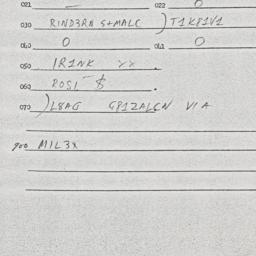 021 — 022 O
030 RIND3RA S+MALC )T1K81V1
040 O 041 O
050 1R1NK YY .
060 ROS1 – $ .
070 )L8AG G81ZALCN V1A
900 M1L3X